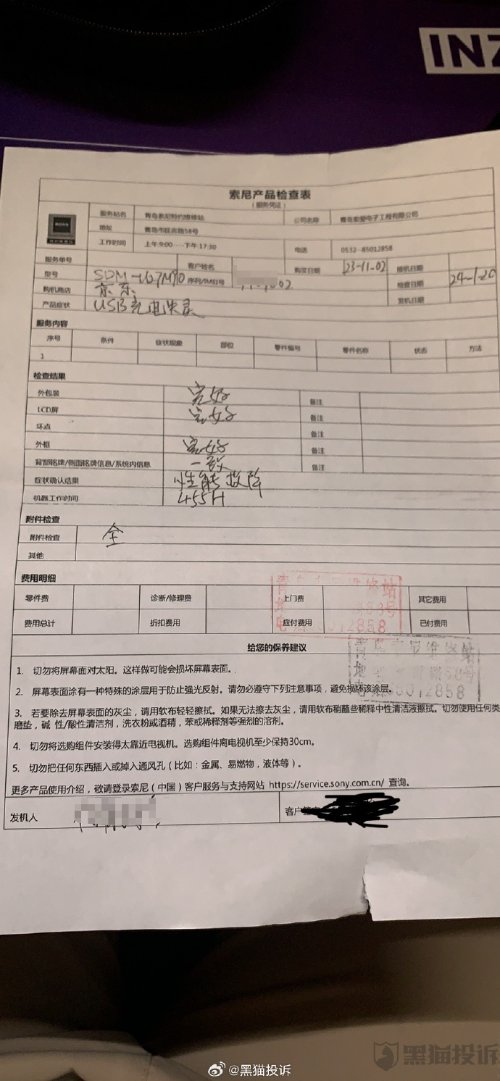 INZ
索尼产品检查表
(服务凭证)
服务站名 青岛索尼特约维修站 公司名称 青岛索爱电子工程有限公司
地址 青岛市延吉路58号
工作时间 上午9:00----下午17:30 电话 0532-85012858
服务单号 客户姓名 购买日期 23-11.02 接机日期
型号 SDM-U27M90 序列/IMEI号 检查日期 24-1-20
购机商店 京东 发机日期
产品症状 USB充电
服务内容
序号 条件 症状现象 部位 零件编号 零件名称 状态 方法
1
检查结果
外包装 完好 备注
LCD屏 完好 备注
坏点 备注
外框 完好 备注
背部铭牌/侧面铭牌信息/系统内信息 一致 备注
症状确认结果 性能故障
机器工作时间 455H
附件检查
附件检查 全
其他
费用明细
零件费 诊断/修理费 上门费 其它费用
费用总计 折扣费用 应付费用 已付费用
给您的保养建议
1. 切勿将屏幕面对太阳。这样做可能会损坏屏幕表面。
2. 屏幕表面涂有一种特殊的涂层用于防止强光反射。请勿必遵守下列注意事项，避免损坏该涂层。
3. 若要除去屏幕表面的灰尘，请用软布轻轻擦拭。如果无法擦去灰尘，请用软布刷蘸些稀释中性清洁液擦拭。切勿使用任何类
磨垫，碱 性/酸性清洁剂，洗衣粉或酒精，苯或稀释剂等强烈的溶剂。
4. 切勿将选购组件安装得太靠近电视机。选购组件离电视机至少保持30cm。
5. 切勿把任何东西插入或掉入通风孔（比如：金属、易燃物，液体等）。
更多产品使用介绍，敬请登录索尼（中国）客户服务与支持网站 https://service.sony.com.cn/ 查询。
发机人 客户
黑猫投诉
@黑猫投诉